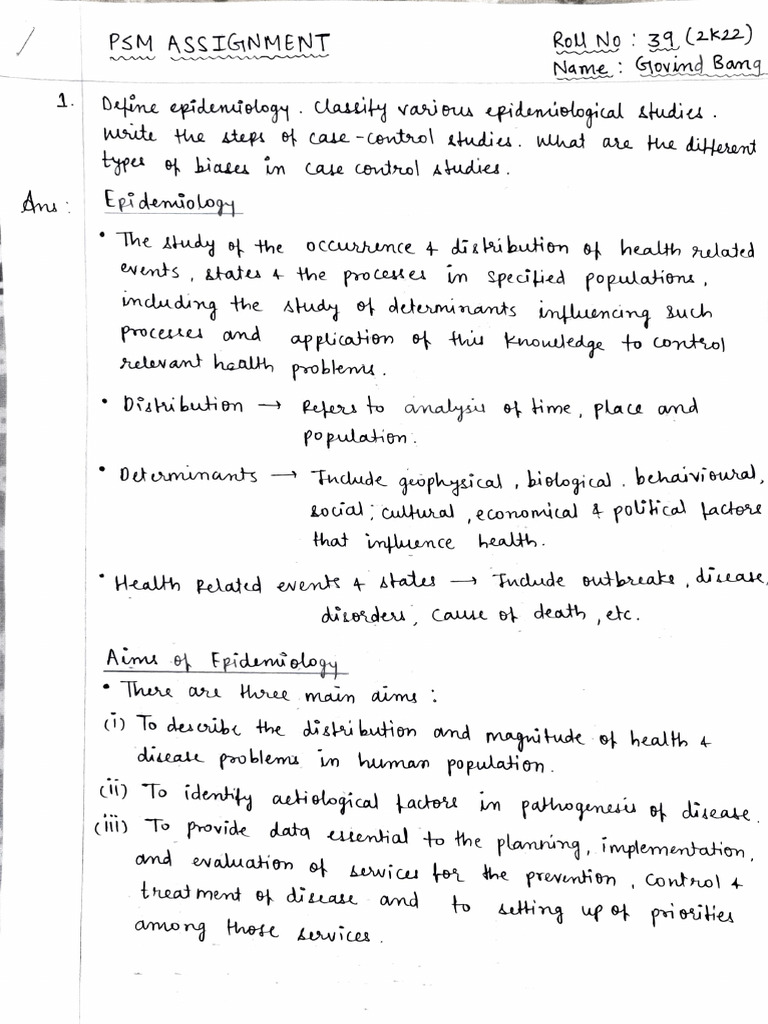 PSM ASSIGNMENT
Roll No : 39 (2K22)
Name : Govind Bang
1. Define epidemiology. Classify various epidemiological studies.
Write the steps of case-control studies. What are the different
types of biases in case control studies.
Ans : Epidemiology
• The study of the occurrence & distribution of health related
events, states & the processes in specified populations,
including the study of determinants influencing such
processes and application of this knowledge to control
relevant health problems.
• Distribution → Refers to analysis of time, place and
population.
• Determinants → Include geophysical, biological. behaivioural,
social; cultural, economical & political factors
that influence health.
• Health Related events & states → Include outbreaks, disease,
disorders, cause of death, etc.
Aims of Epidemiology
• There are three main aims :
(i) To describe the distribution and magnitude of health &
disease problems in human population.
(ii) To identify aetiological factors in pathogenesis of disease.
(iii) To provide data essential to the planning, implementation,
and evaluation of services for the prevention, control &
treatment of disease and to setting up of priorities
among those services.